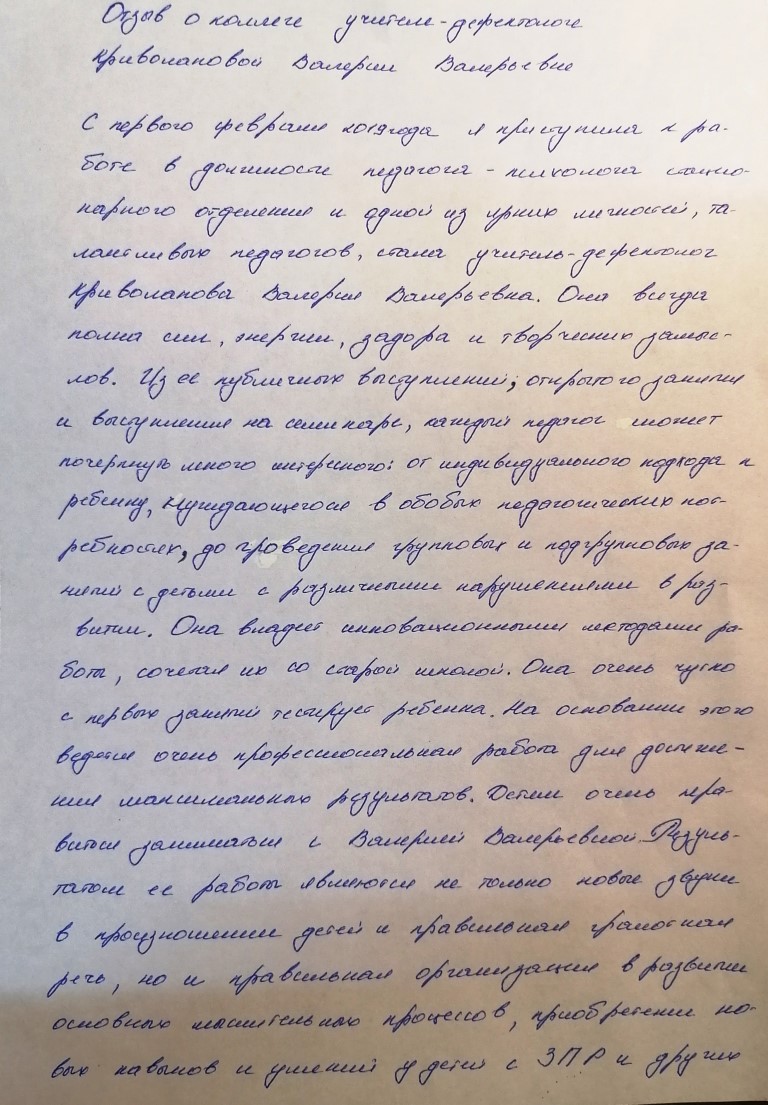 Отзыв о коллеге учителе-дефектологе
Криволаповой Валерии Валерьевне
С первого февраля 2019года я приступила к ра-
боте в должности педагога-психолога стацио-
нарного отделения и одной из ярких личностей, та-
лантливых педагогов, стала учитель-дефектолог
Криволапова Валерия Валерьевна. Она всегда
полна сил, энергии, задора и творческих замыс-
лов. Из ее публичных выступлений, открытого занятия
и выступления на семинаре, каждый педагог может
почерпнуть много интересного: от индивидуального подхода к
ребенку, нуждающегося в обобых педагогических пот-
ребностях, до проведения групповых и подгрупповых за-
нятий с детьми с различными нарушениями в раз-
витии. Она владеет инновационными методами ра-
боты, сочетая их со старой школой. Она очень чутко
с первых занятий тестирует ребенка. На основании этого
ведется очень профессиональная работа для достиже-
ния максимальных результатов. Детям очень нра-
вится заниматься с Валерией Валерьевной. Резуль-
татом ее работы являются не только новые звуки
в произношении детей и правильная грамотная
речь, но и правильная организация в развитии
основных мыслительных процессов, приобретении но-
вых навыков и умений у детей с ЗПР и других